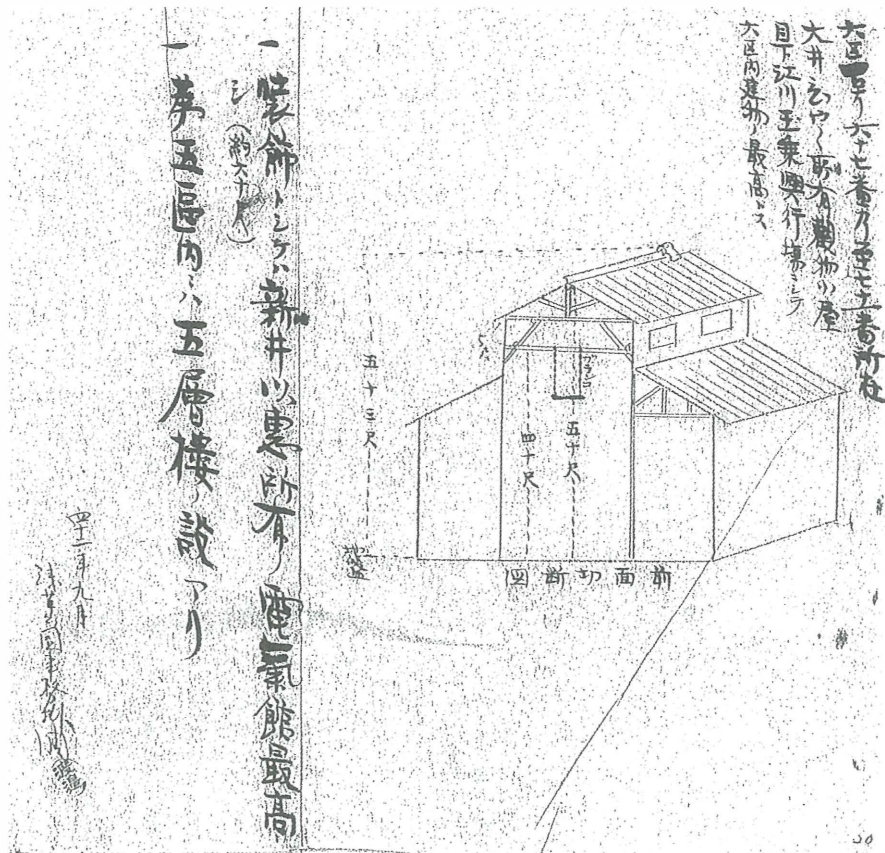 六区一号六十七番乃至七十一番所在
大井その所有観物小屋
目下江川玉乗興行場ニシテ
六区内建物ノ最高トス
ブランコ
五十三尺
五十尺
四十尺
地盤
前面切断図
一 装飾トシテハ新井所有ノ電氣館最高
シ(約六十尺)
一 第五區内ニハ五層楼ノ設アリ
四十二年九月